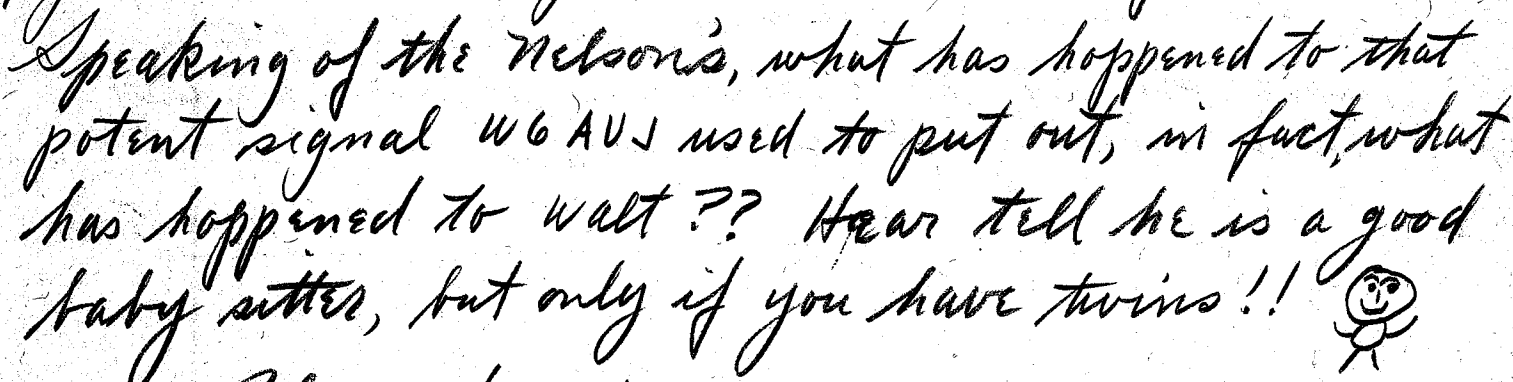 Speaking of the Nelson's, what has happened to that
potent signal W6AUJ used to put out, in fact, what
has happened to Walt ?? Hear tell he is a good
baby sitter, but only if you have twins!!